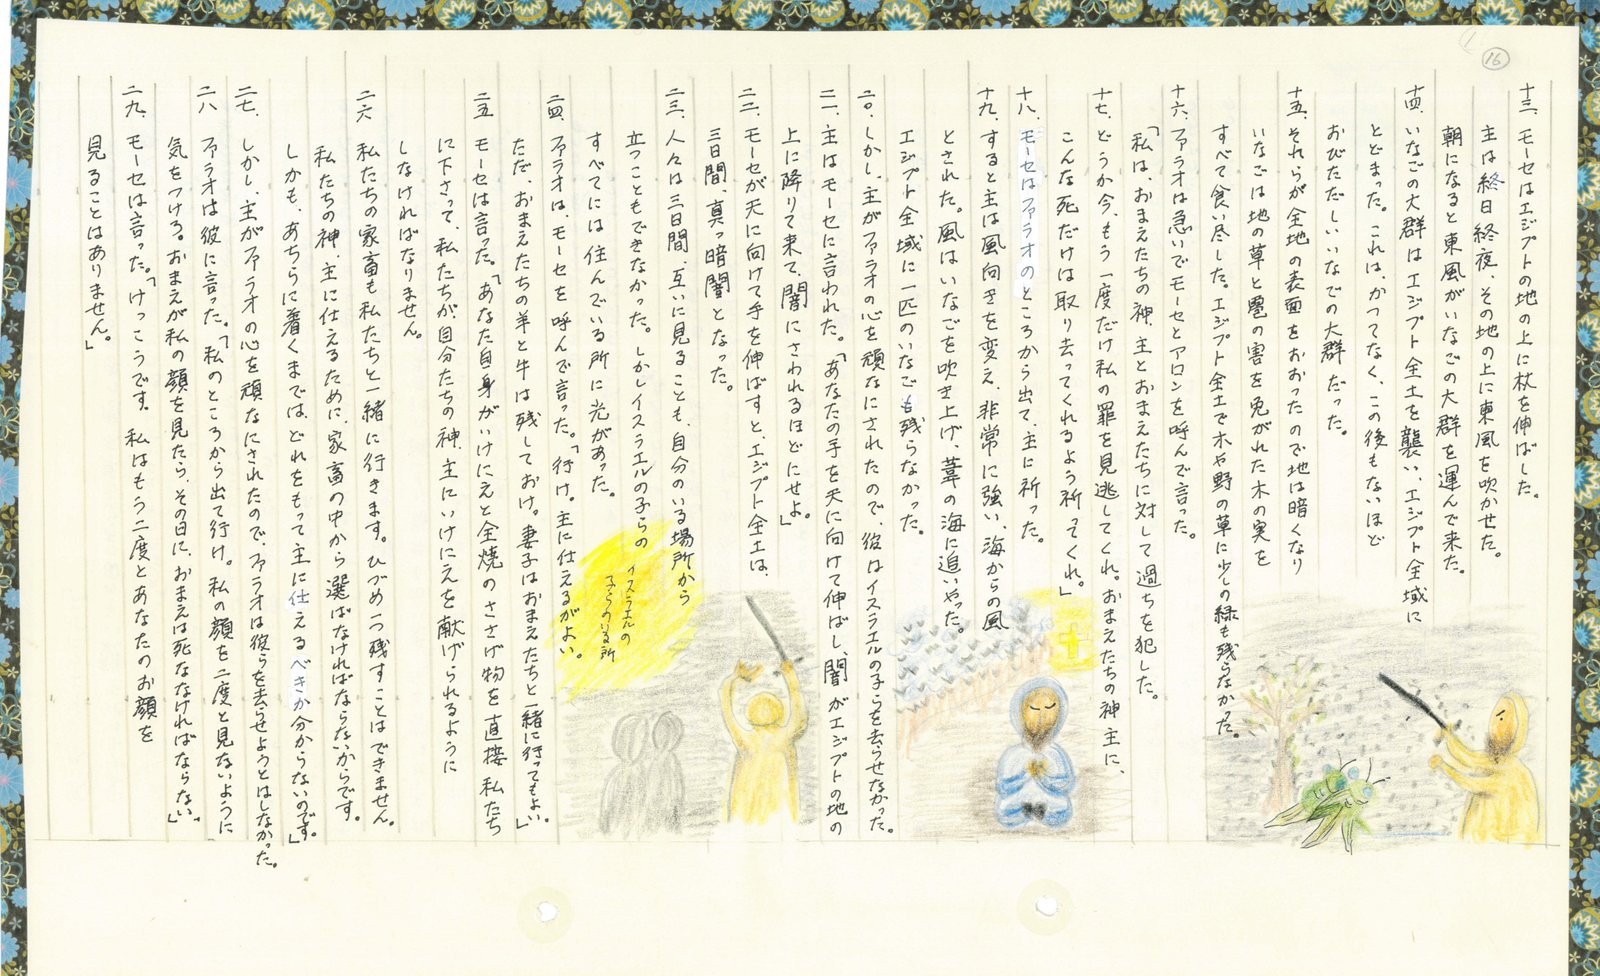 16
十三、モーセはエジプトの地の上に杖を伸ばした。
主は終日終夜、その地の上に東風を吹かせた。
朝になると東風がいなごの大群を運んで来た。
十四、いなごの大群はエジプト全土を襲い、エジプト全域に
とどまった。これは、かつてなく、この後もないほど
おびただしいいなごの大群だった。
十五、それらが全地の表面をおおったので地は暗くなり
いなごは地の草と雹の害を免がれた木の実を
すべて食い尽した。エジプト全土で木や野の草に少しの緑も残らなかった。
十六、ファラオは急いでモーセとアロンを呼んで言った。
「私は、おまえたちの神、主とおまえたちに対して過ちを犯した。
十七、どうか今、もう一度だけ私の罪を見逃してくれ。おまえたちの神主に、
こんな死だけは取り去ってくれるよう祈ってくれ。」
十八、モーセはファラオのところから出て、主に祈った。
十九、すると主は風向きを変え、非常に強い、海からの風
とされた。風はいなごを吹き上げ、葦の海に追いやった。
エジプト全域に一匹のいなごも残らなかった。
二〇、しかし、主がファラオの心を頑なにされたので、彼はイスラエルの子らを去らせなかった。
二一、主はモーセに言われた。「あなたの手を天に向けて伸ばし、闇がエジプトの地の
上に降りて来て、闇にさわれるほどにせよ。」
二二、モーセが天に向けて手を伸ばすと、エジプト全土は、
三日間、真っ暗闇となった。
二三、人々は三日間、互いに見ることも、自分のいる場所から
立つこともできなかった。しかしイスラエルの子らの
すべてには住んでいる所に光があった。
イスラエルの
子らのいる所
二四、ファラオは、モーセを呼んで言った。「行け。主に仕えるがよい。
ただ、おまえたちの羊と牛は残しておけ。妻子はおまえたちと一緒に行ってもよい。」
二五、モーセは言った。「あなた自身がいけにえと全焼のささげ物を直接私たち
に下さって、私たちが自分たちの神、主にいけにえを献げられるように
しなければなりません。
二六、私たちの家畜も私たちと一緒に行きます。ひづめ一つ残すことはできません。
私たちの神、主に仕えるために、家畜の中から選ばなければならないからです。
しかも、あちらに着くまでは、どれをもって主に仕えるべきか分からないのです。」
二七、しかし、主がファラオの心を頑なにされたので、ファラオは彼らを去らせようとはしなかった。
二八、ファラオは彼に言った。「私のところから出て行け。私の顔を二度と見ないように
気をつけろ。おまえが私の顔を見たら、その日に、おまえは死ななければならない。」
二九、モーセは言った。「けっこうです。私はもう二度とあなたのお顔を
見ることはありません。」